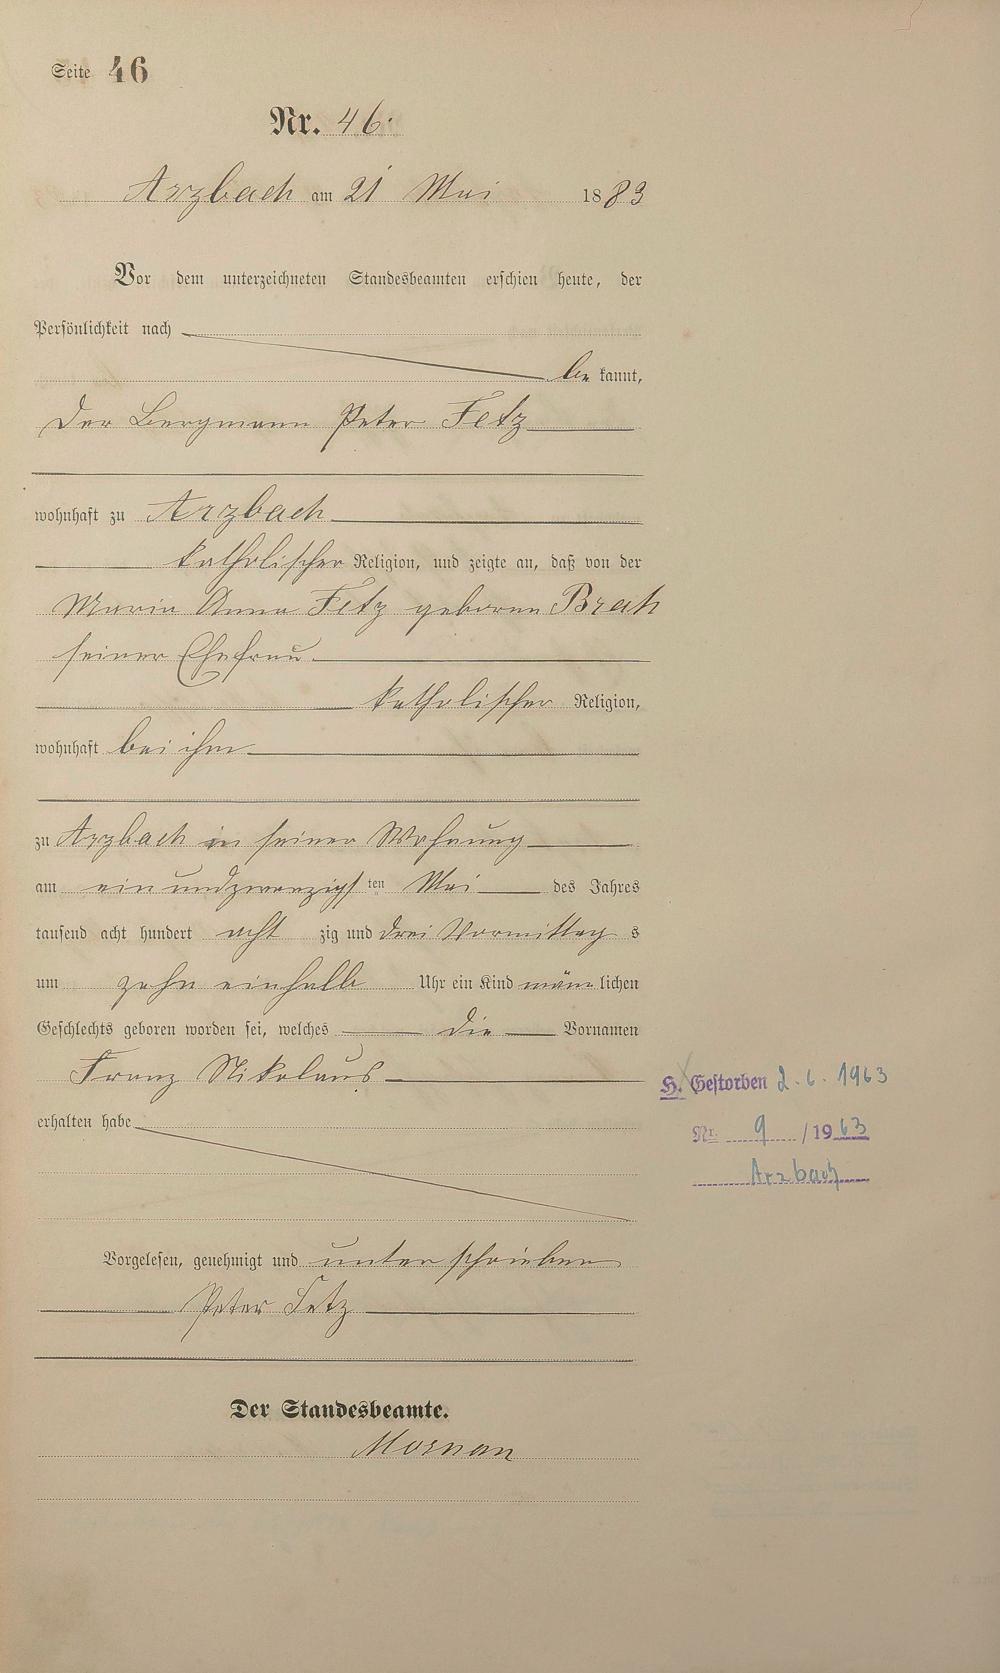 Seite 46
Nr. 46.
Arzbach am 21 Mai 1883
Vor dem unterzeichneten Standesbeamten erschien heute, der
Persönlichkeit nach
be kannt,
der Bergmann Peter Fetz
wohnhaft zu Arzbach
katholischer Religion, und zeigte an, daß von der
Maria Anna Fetz geborene Brech
seiner Ehefrau
katholischer Religion,
wohnhaft bei ihm
zu Arzbach in seiner Wohnung
am ein und zwanzigs ten Mai des Jahres
tausend acht hundert acht zig und drei Vormittag s
um zehn einhalb Uhr ein Kind männ lichen
Geschlechts geboren worden sei, welches die Vornamen
Franz Nikolaus
erhalten habe
H. Gestorben 2.6.1963
Nr. 9 /1963
Arzbach
Vorgelesen, genehmigt und unterschrieben
Peter Fetz
Der Standesbeamte.